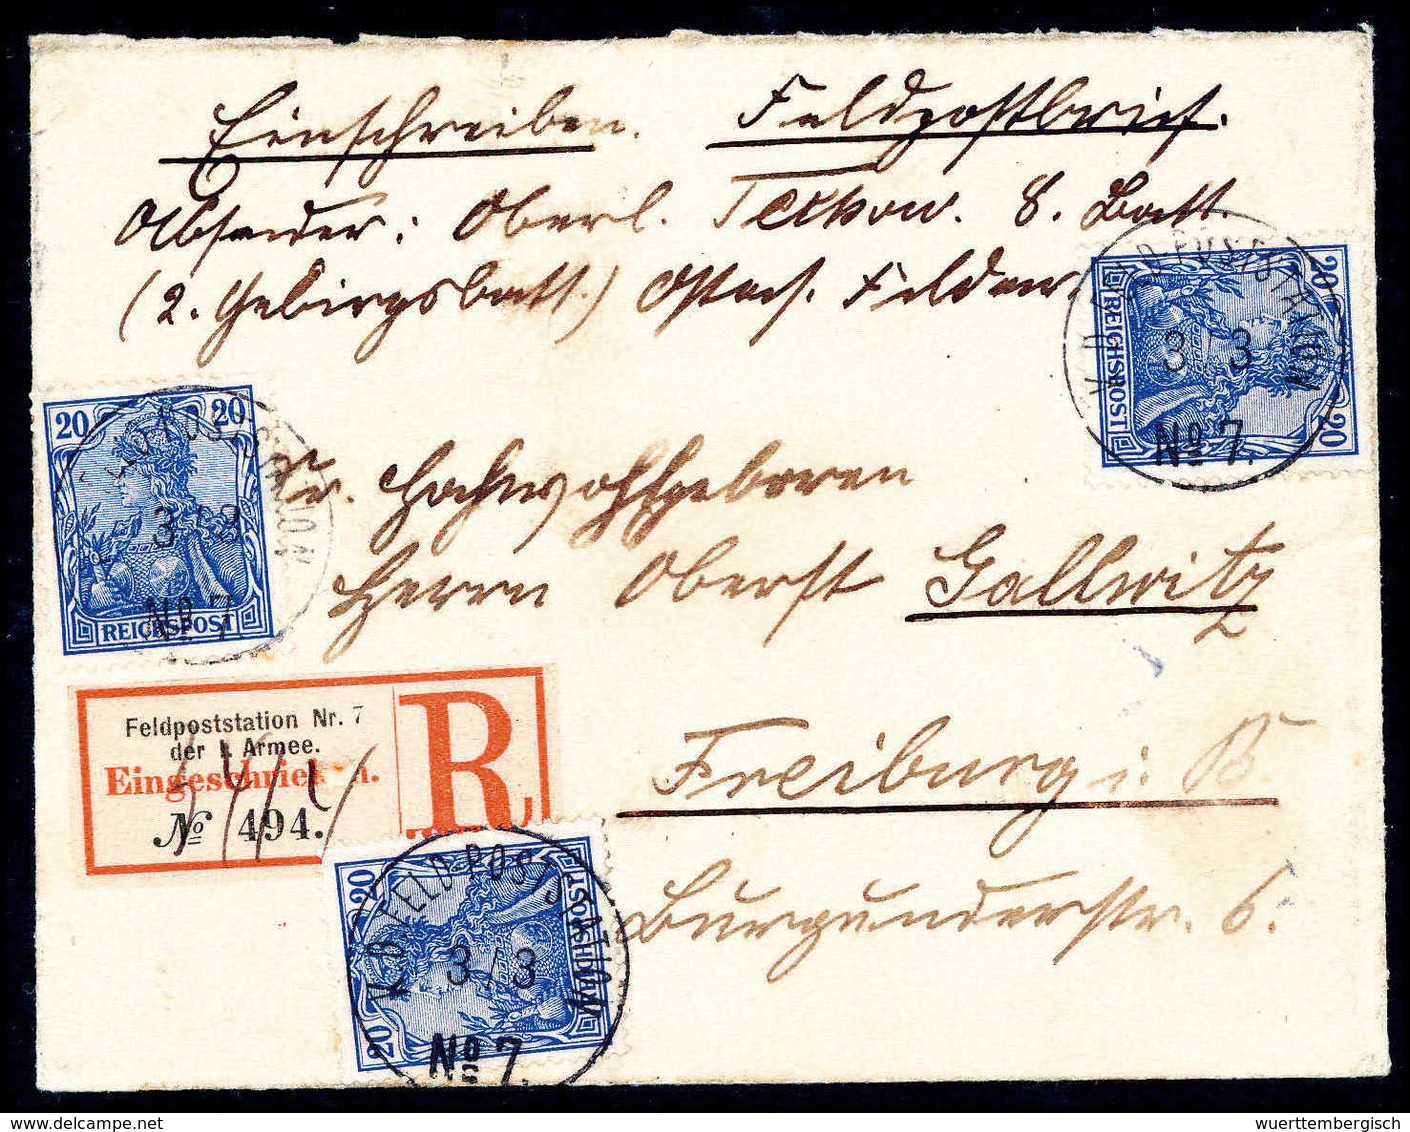 Einschreiben. Feldpostbrief.
Absender: Oberl. 8. Batt.
(2. Gebirgsbatt.) Ostas. Feldar
20 20
REICHSPOST
3/3
No 7.
20 20
REICHSPOST
K.D. FELD-POSTSTATION
3/3
No 7.
Sr. Hochwohlgeboren
Herrn Oberst Gallwitz
Feldpoststation Nr. 7
der 1. Armee.
Eingeschrieben.
No 494.
R
Freiburg i. B.
Burgunderstr. 6.
20 20
REICHSPOST
K.D. FELD-POSTSTATION
3/3
No 7.
delcampe.net
wuerttembergisch